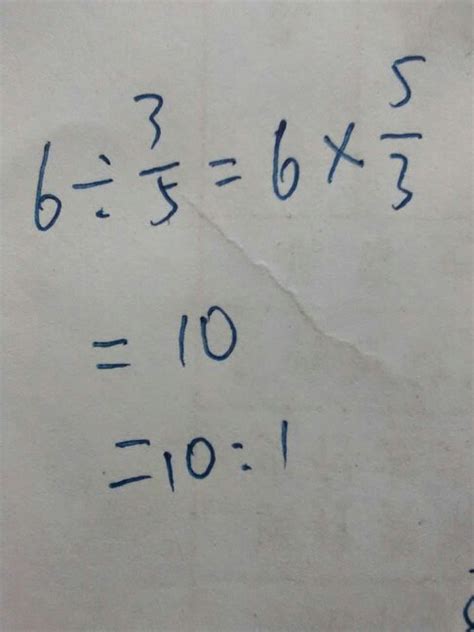 6 ÷ 3/5 = 6 × 5/3
= 10
= 10 : 1